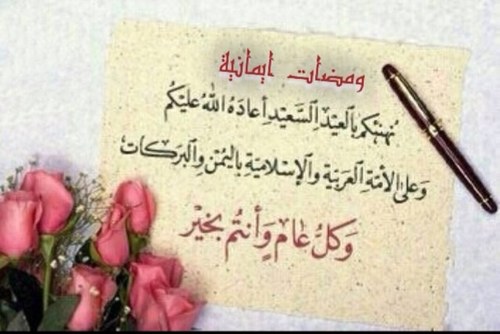 ومضات ايمانية
نُهنِئكم بالعِيْدِ السَّعِيْدِ أعادَهُ اللهُ عليْكُم
وَعلى الأمّةِ العَربيّة والإسْلاميّة باليُمْن والبَركات
وَكلُّ عَام وَأنتُم بخيْر